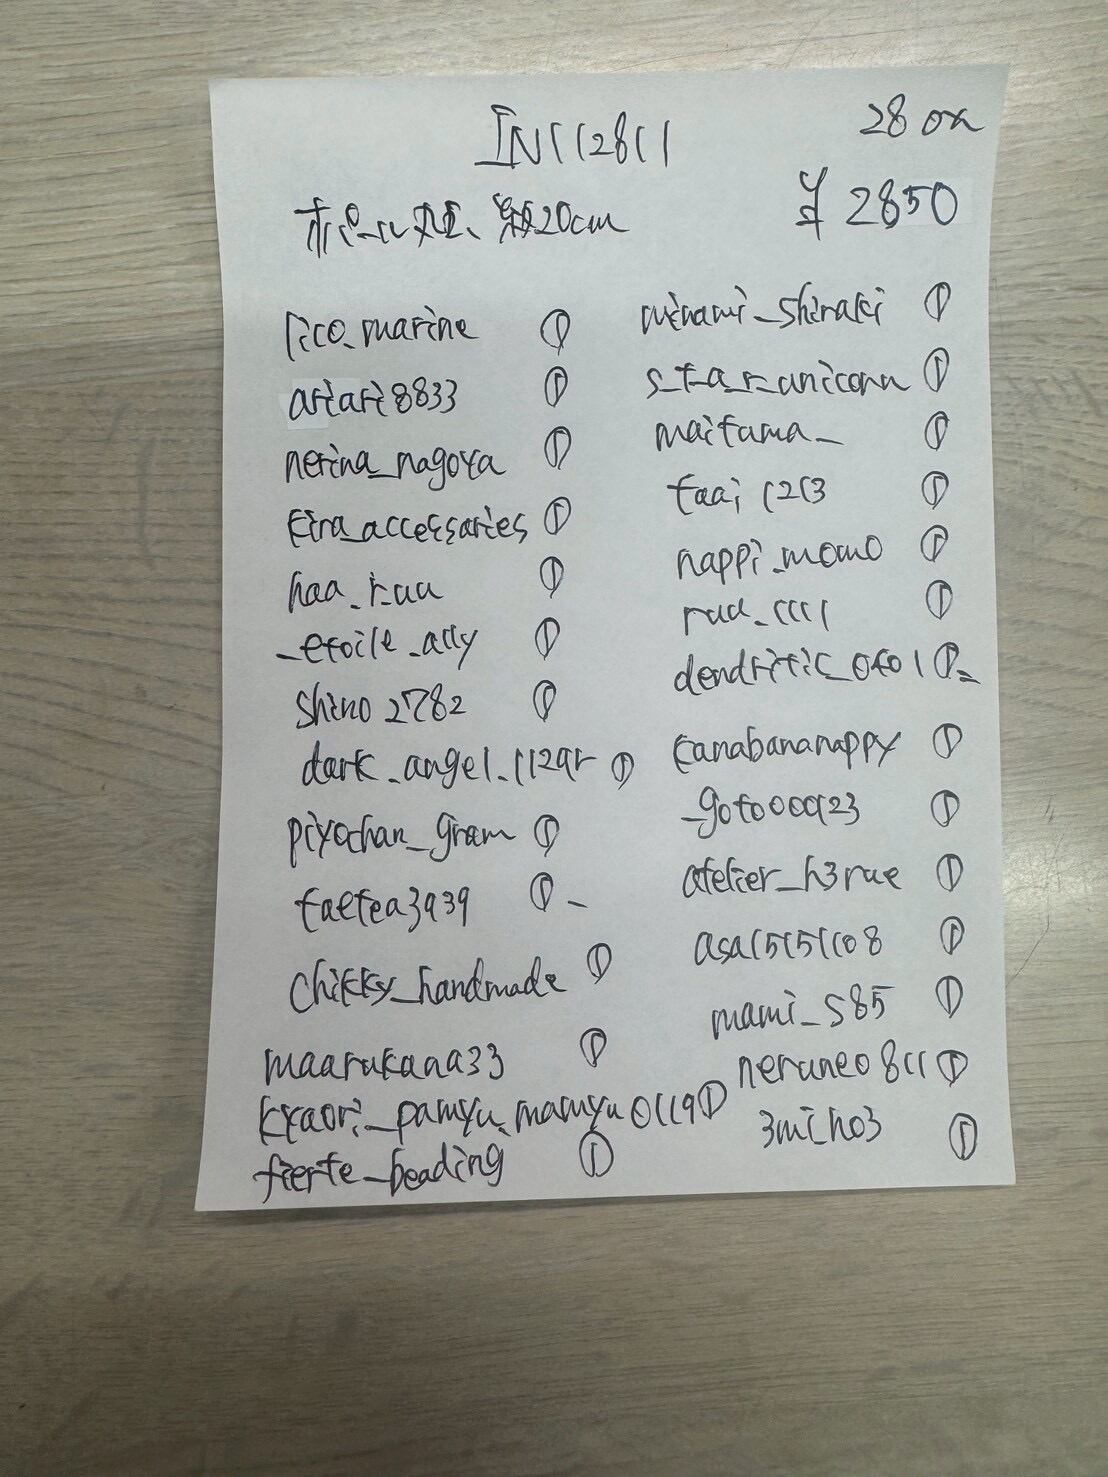 IN112811
28 ox
¥ 2850
20cm
lico_marine ①
ariari8833 ①
nerina_nagoya ①
kira_accessaries ①
haa_r.uu ①
_etoile_ally ①
shino2782 ①
dark_angel. ①
piyochan_gram ①
taetea3939 ①
chikky_handmade ①
maarukana33 ①
kyaori_pamyu_mamyu0119 ①
fierte_beading ①
minami_shiraki ①
s_t_a_r_unicorn ①
maitama_ ①
taai1213 ①
nappi_momo ①
ruu_1111 ①
dendritic_0401 ①
kanabananappy ①
_goto000923 ①
atelier_h3rue ①
asa15151108 ①
mami_s85 ①
nerune0811 ①
3miho3 ①